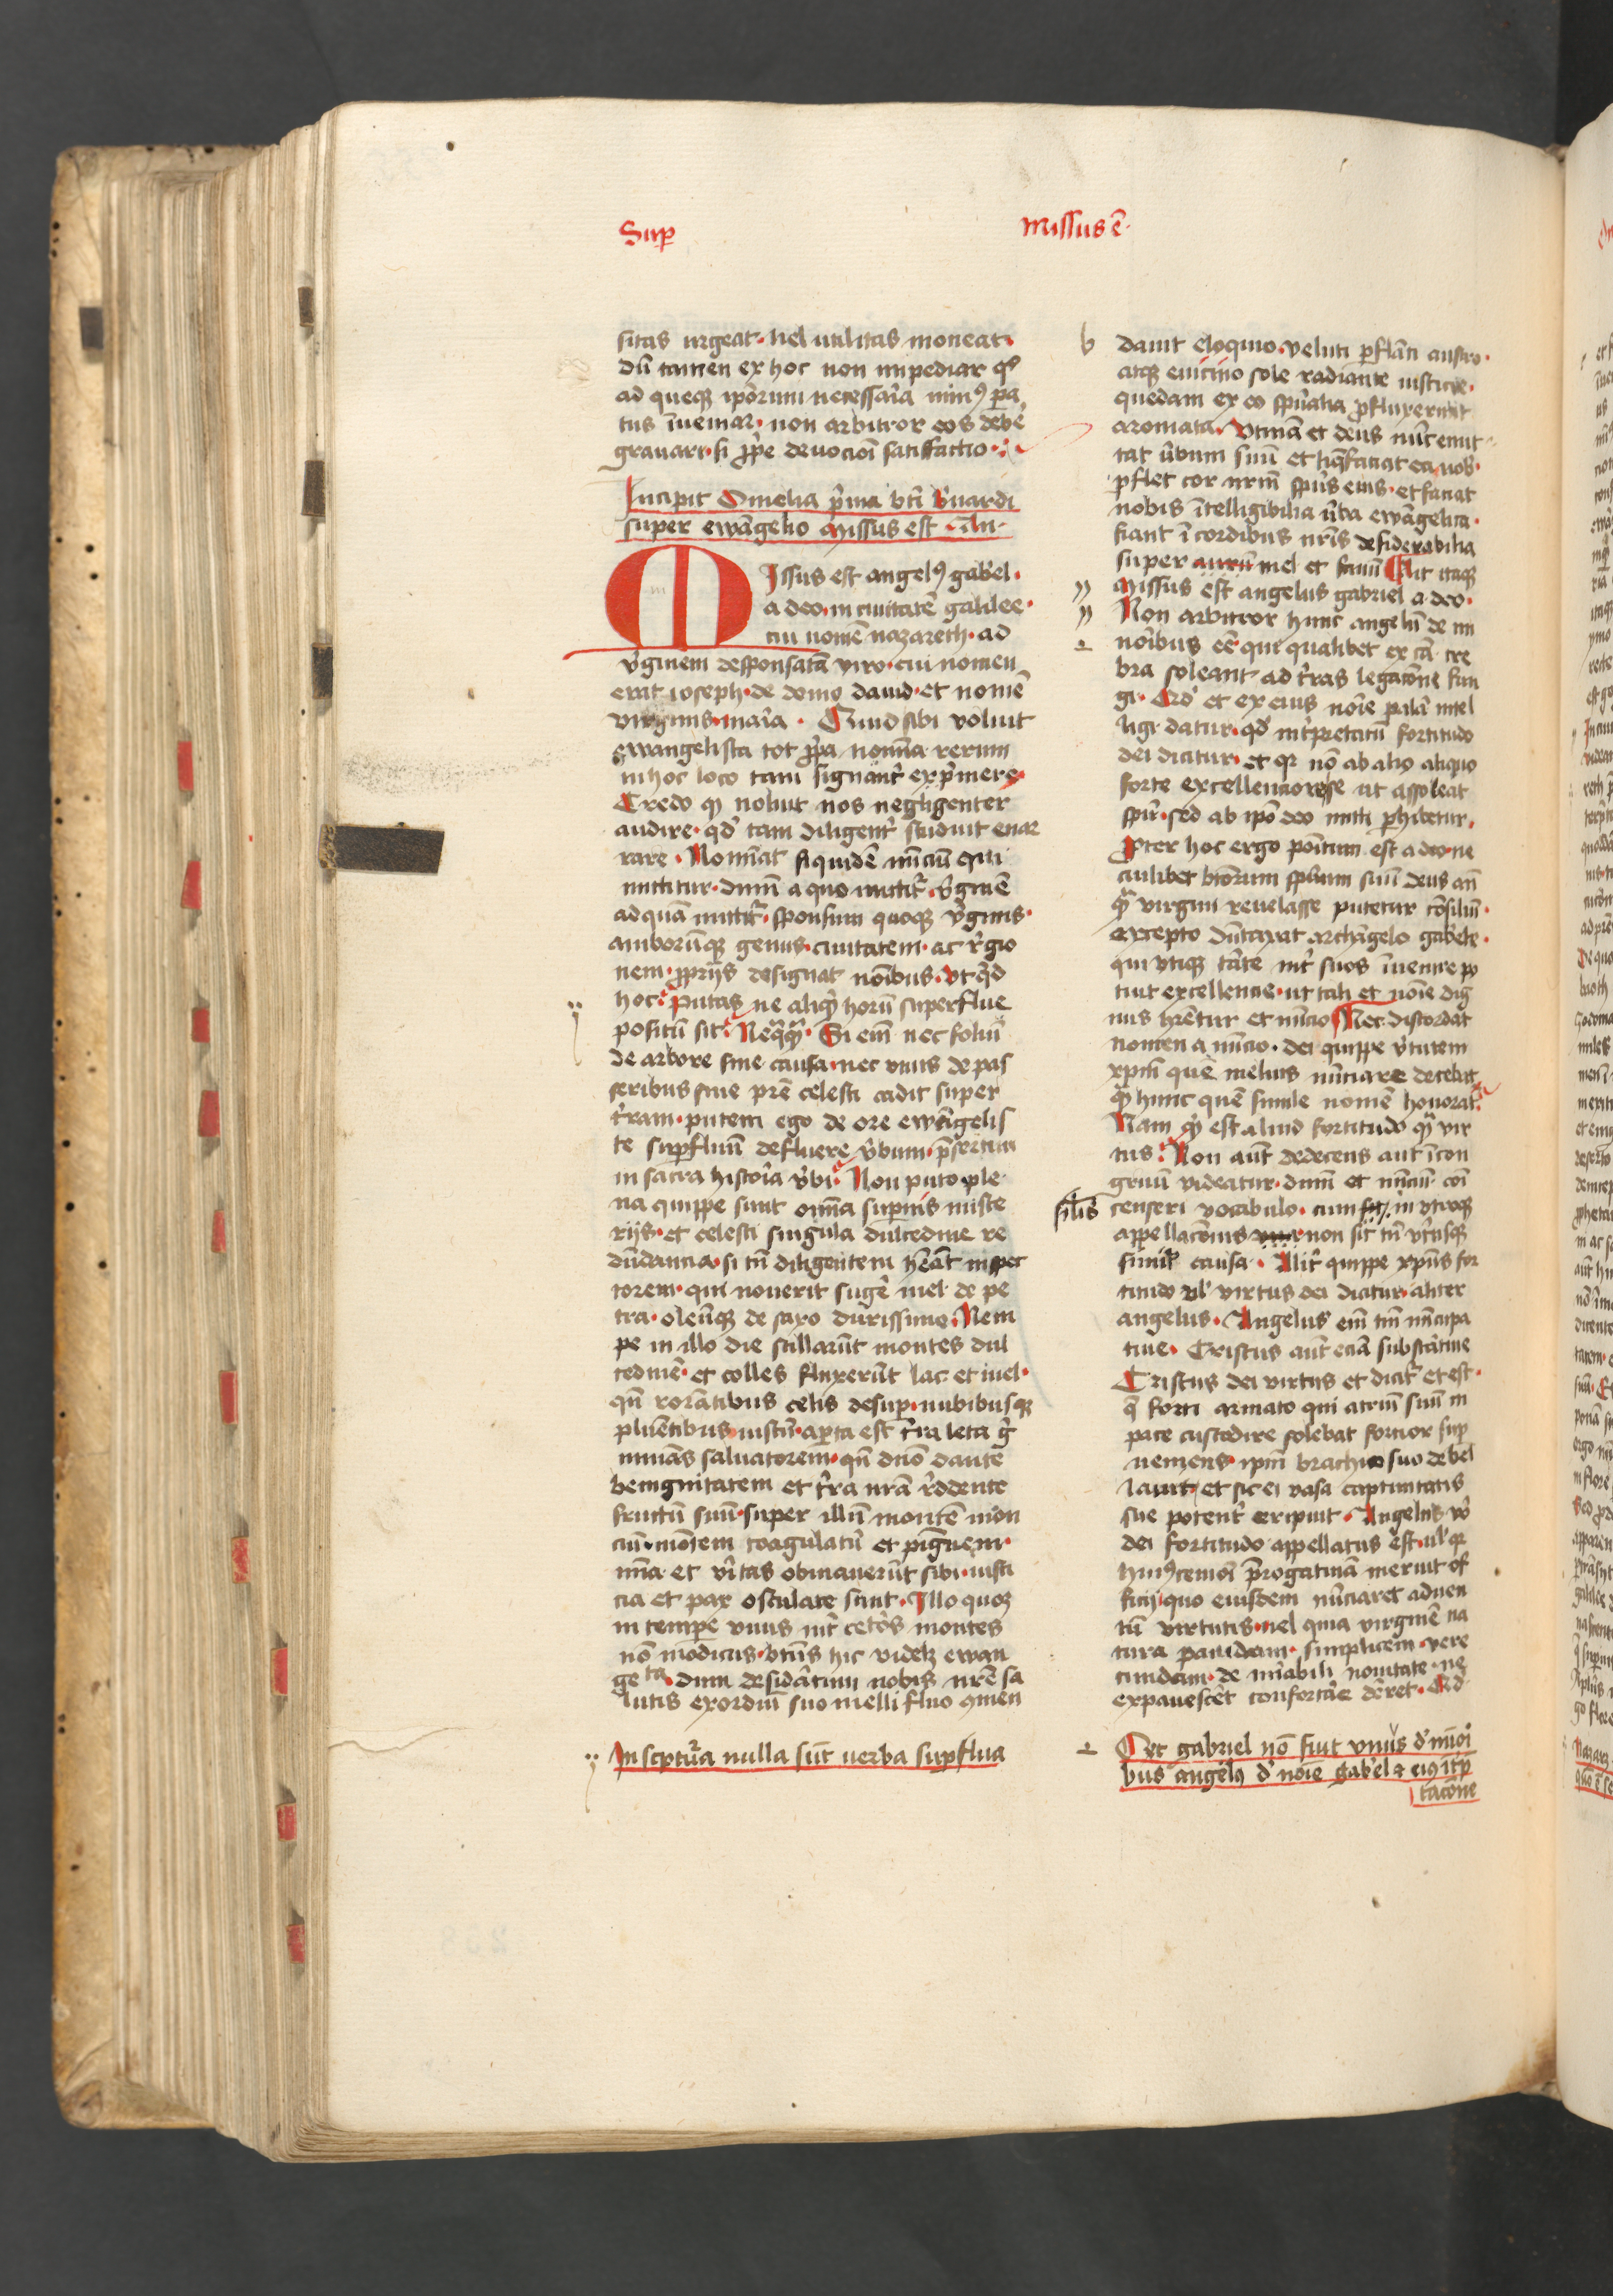 Sup
missus ē
sitas urgeat · uel utilitas moneat ·
dū tamen ex hoc non impediar qͥ
ad queqꝫ ip̄orum necessaria minꝰ pa
tus īueniar · non arbitror eos debē
grauari · si p̄pe deuocioī satisfactio ·
Incipit Omelia p̄ma bt̄i b̄nardi
super ewāgelio Missus est An
MIssus est angelꝰ gab̄el ·
a deo · in ciuitatē galilee ·
cui nomē nazareth · ad
v̄ginem desponsatā viro · cui nomen
erat ioseph · de domo dauid · et nomē
virginis · maīa · Quid sibi voluit
ewangelista tot p̄pa nomīna rerum
in hoc loco tam signant᷑ exp̄mere ·
Credo qꝫ noluit nos negligenter
audire · qd̄ tam diligent᷑ studuit enar
rare · Nomīat siquidē nūciū qui
mittitur · dnm̄ a quo mittit᷑ · v̄ginē
ad quā mittit᷑ · sponsum quoqꝫ v̄ginis ·
amborūqꝫ genus · ciuitatem · ac r̄gio
nem · ꝓprijs designat noībus · Vt qͥd
hoc · Putas ne aliqͥd horū superflue
positū sit · Neqͣqͣ · Si em̄ nec foliū
de arbore sine causa · nec vnus de pas
seribus sine pr̄e celesti cadit super
t̄ram · putem ego de ore ewāgelis
te suꝑfluū defluere v̄bum · p̄sertim
in sacra historia v̄bi · Non puto ple
na quippe sunt om̄ia supernis miste
rijs · et celesti singula dulcedine re
dūdancia · si tn̄ diligentem h̄eāt inspec
torem · qui nouerit sugē mel de pe
tra · oleūqꝫ de saxo durissimo · Nem
pe in illo die stillarūt montes dul
cedinē · et colles fluxerūt lac et mel ·
qn̄ rorātibus celis desuꝑ · nubibusqꝫ
pluētibus iustū · aꝑta est t̄ra leta ḡ
minās saluatorem · qn̄ dn̄o dante
benignitatem et t̄ra nr̄a r̄ddente
fructū suū · super illū montē mon
ciū · montem coagulatū et pīguem ·
mīa et v̄itas obuiauerūt sibi · iusti
cia et pax osculate sunt · Illo quoqꝫ
in tempe vnus int᷑ cet̄os montes
nō modicus · bt̄us hic videlꝫ ewan
ge ta · dum desid̄atum nobis nr̄e sa
lutis exordiū suo mellifluo ꝯmen
In sc̄ptura nulla sūt uerba suꝑflua
b
dauit eloquio · veluti ꝑflāti austro ·
atqꝫ e vicino sole radiante iusticie ·
quedam ex eo sp̄ualia ꝓfluxerunt
aromata · Vtinā et deus nūc emit
tat v̄bum suū et liq̄faciat ea nob̄ ·
ꝑflet cor nr̄m sp̄us eius · et faciat
nobis ītelligibilia v̄ba ewāgelica ·
fiant ī cordibus nr̄is desiderabilia
super aurū mel et fauū Ait itaqꝫ
Missus est angelus gabriel a deo ·
Non arbitror hunc angelū de mi
noībus eē · qui qualibet ex cā cre
bra soleant ad t̄ras legacōne fun
gi · Qd̄ et ex eius noīe palā intel
ligi datur · qd̄ int᷑pretatū fortitudo
dei dicitur · et qꝫ nō ab alio aliquo
forte excellenciore se ut assoleat
spū · sed ab ip̄o deo mitti ꝑhibetur ·
Propter hoc ergo positum est a deo · ne
cuilibet bt̄orum sp̄uum suū deus an̄
qͣ virgini reuelasse putetur cōsiliū ·
excepto dūtaxat archāgelo gab̄ele ·
qui vtiqꝫ tāte int᷑ suos īuenire po
tuit excellencie · ut tali et noīe dig
nus h̄retur et nūcio Nec discordat
nomen a nūcio · dei quippe v̄tutem
xp̄m quē melius nūciare decebat
qͣ hunc quē simile nomē honorat
Nam qͥd est aliud fortitudo qͣ vir
tus · Non aūt dedecens aut īcon
gruū videatur · dnm̄ et nūciū coī
censeri vocabulo · cum sit in vtroqꝫ
sil̄is
appellacōnis non sit tn̄ vt̄iusqꝫ
simil̄ causa · Alit᷑ quippe xp̄us for
titudo ul̄ virtus dei dicitur · aliter
angelus · Angelus em̄ tm̄ nūcupa
tiue · Cristus aūt eciā substātiue
Cristus dei virtus et dicit᷑ et est ·
q̄ forti armato qui atriū suū in
pace custodire solebat forcior sup
ueniens · ip̄m brachio suo debel
lauit · et sic ei vasa captiuitatis
sue potent᷑ eripuit · Angelus v̄o
dei fortitudo appellatus est · ul̄ qꝫ
huiꝰcemoī p̄rogatiuā meruit of
ficij · quo eiusdem nūciaret aduen
tū virtutis · uel quia virginē na
tura pauidam · simplicem · vere
cundam · de mīabili nouitate · ne
expauescēt confortāe dēret · Qd̄
Qꝫ gabriel nō fuit vnus d̄ mīoī
bus angelꝰ d̄ noīe gab̄el ⁊ eiꝰ īt̄p
tacōne